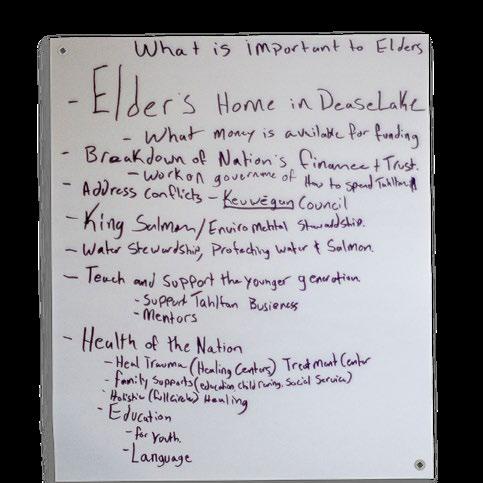 What is important to Elders
- Elder's Home in Dease Lake
- What money is available for funding
- Breakdown of Nation's Finance + Trust.
- Work on governance of How to spend Tahltan
- Address Conflicts - Keywēgan Council
- King Salmon/Enviromental Stewardship.
- Water Stewardship, Protecting water & Salmon.
- Teach and Support the younger generation
- Support Tahltan Business
- Mentors
- Health of the Nation
- Heal Trauma (Healing Centers) Treatment Center
- Family Supports (education, child rearing, Social Service)
- Holistic (full circle) Healing
- Education
- for Youth.
- Language